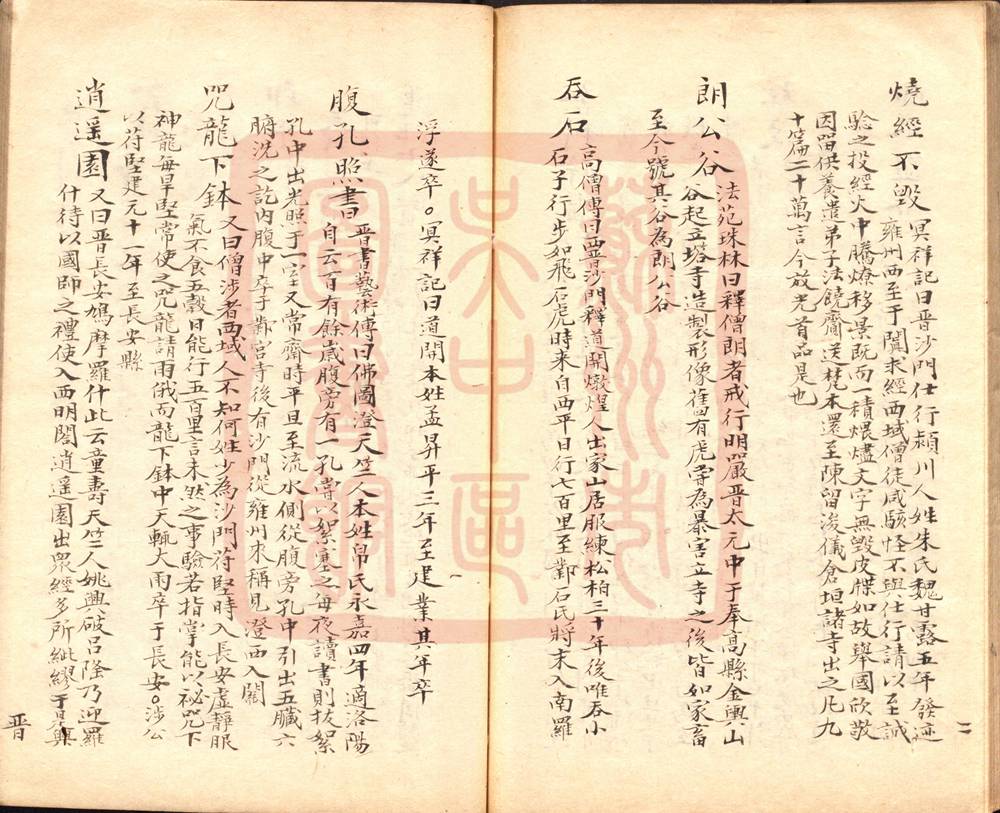 二
燒經不毀 冥祥記曰晉沙門仕行頴川人姓朱氏魏甘露五年發迹
雍州西至于闐求經西域僧徒咸駭怪不與仕行請以至誠
驗之投經火中騰燎移景既而一積煨燼文字無毀皮牒如故舉國欣敬
因留供養遣弟子法饒齎送梵本還至陳留浚儀倉垣諸寺出之凡九
十篇二十萬言今放光首品是也
朗公谷 法苑珠林曰釋僧朗者戒行明嚴晉太元中于奉高縣金輿山
谷起立塔寺造製形像舊有虎嘗為暴害立寺之後皆如家畜
至今號其谷為朗公谷
吞石 高僧傳曰晉沙門釋道開燉煌人出家山居服練松柏三十年後唯吞小
石子行步如飛石虎時来自西平日行七百里至鄴石氏將末入南羅
浮遂卒。冥祥記曰道開本姓孟昇平三年至建業其年卒
腹孔照書 晉書藝術傳曰佛圖澄天竺人本姓帛氏永嘉四年適洛陽
自云百有餘歲腹旁有一孔嘗以絮塞之每夜讀書則拔絮
孔中出光照于一室又常齋時平旦至流水側從腹旁孔中引出五臟六
腑洗之訖內腹中卒于鄴宮寺後有沙門從雍州來稱見澄西入關
咒龍下鉢 又曰僧涉者西域人不知何姓少為沙門苻堅時入長安虛靜服
氣不食五穀日能行五百里言未然之事驗若指掌能以祕咒下
神龍每旱堅常使之咒龍請雨俄而龍下鉢中天輒大雨卒于長安。涉公
以苻堅建元十一年至長安縣
逍遥園 又曰晉長安鳩摩羅什此云童壽天竺人姚興破吕隆乃迎羅
什待以國師之禮使入西明閣逍遥園出眾經多所紕繆于是興
晋
蘇州市
吴中區
圖書館